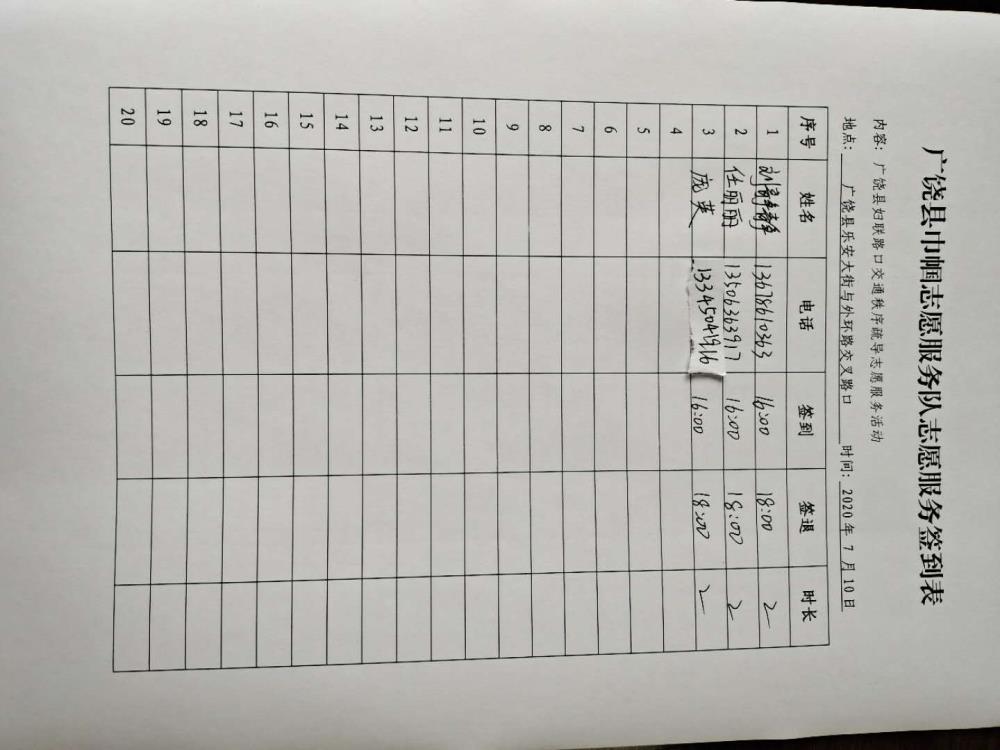 广饶县巾帼志愿服务队志愿服务签到表
内容：广饶县妇联路口交通秩序疏导志愿服务活动
地点： 广饶县乐安大街与外环路交叉路口 时间：2020年7月10日
序号 姓名 电话 签到 签退 时长
1 刘静静 13678610363 16:00 18:00 2
2 任丽丽 13506363917 16:00 18:00 2
3 庞英 13345041916 16:00 18:00 2
4
5
6
7
8
9
10
11
12
13
14
15
16
17
18
19
20